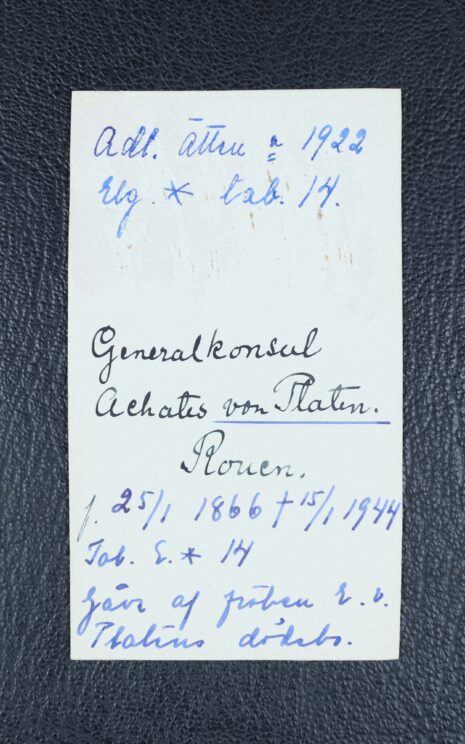 Adl. ätten n 1922
Elg. * tab. 14.
Generalkonsul
Achates von Platen.
Rouen.
f. 25/1 1866 † 15/1 1944
Tab. E. * 14
Gåva af fröken E. v.
Platens dödsbo.